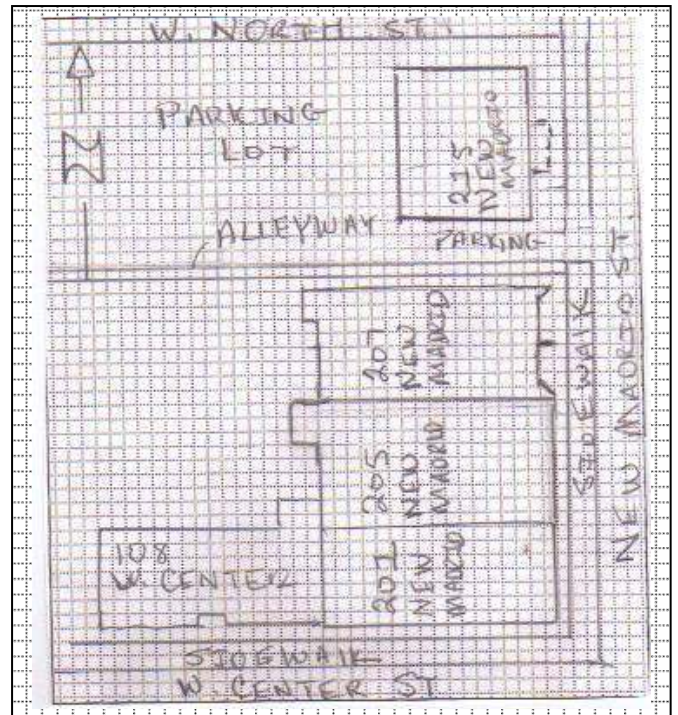 W. NORTH ST
N
PARKING
LOT
215
NEW
MADRID
ALLEYWAY
PARKING
207
NEW
MADRID
SIDEWALK
NEW MADRID ST.
205
NEW
MADRID
108
W. CENTER
201
NEW
MADRID
SIDEWALK
W. CENTER ST